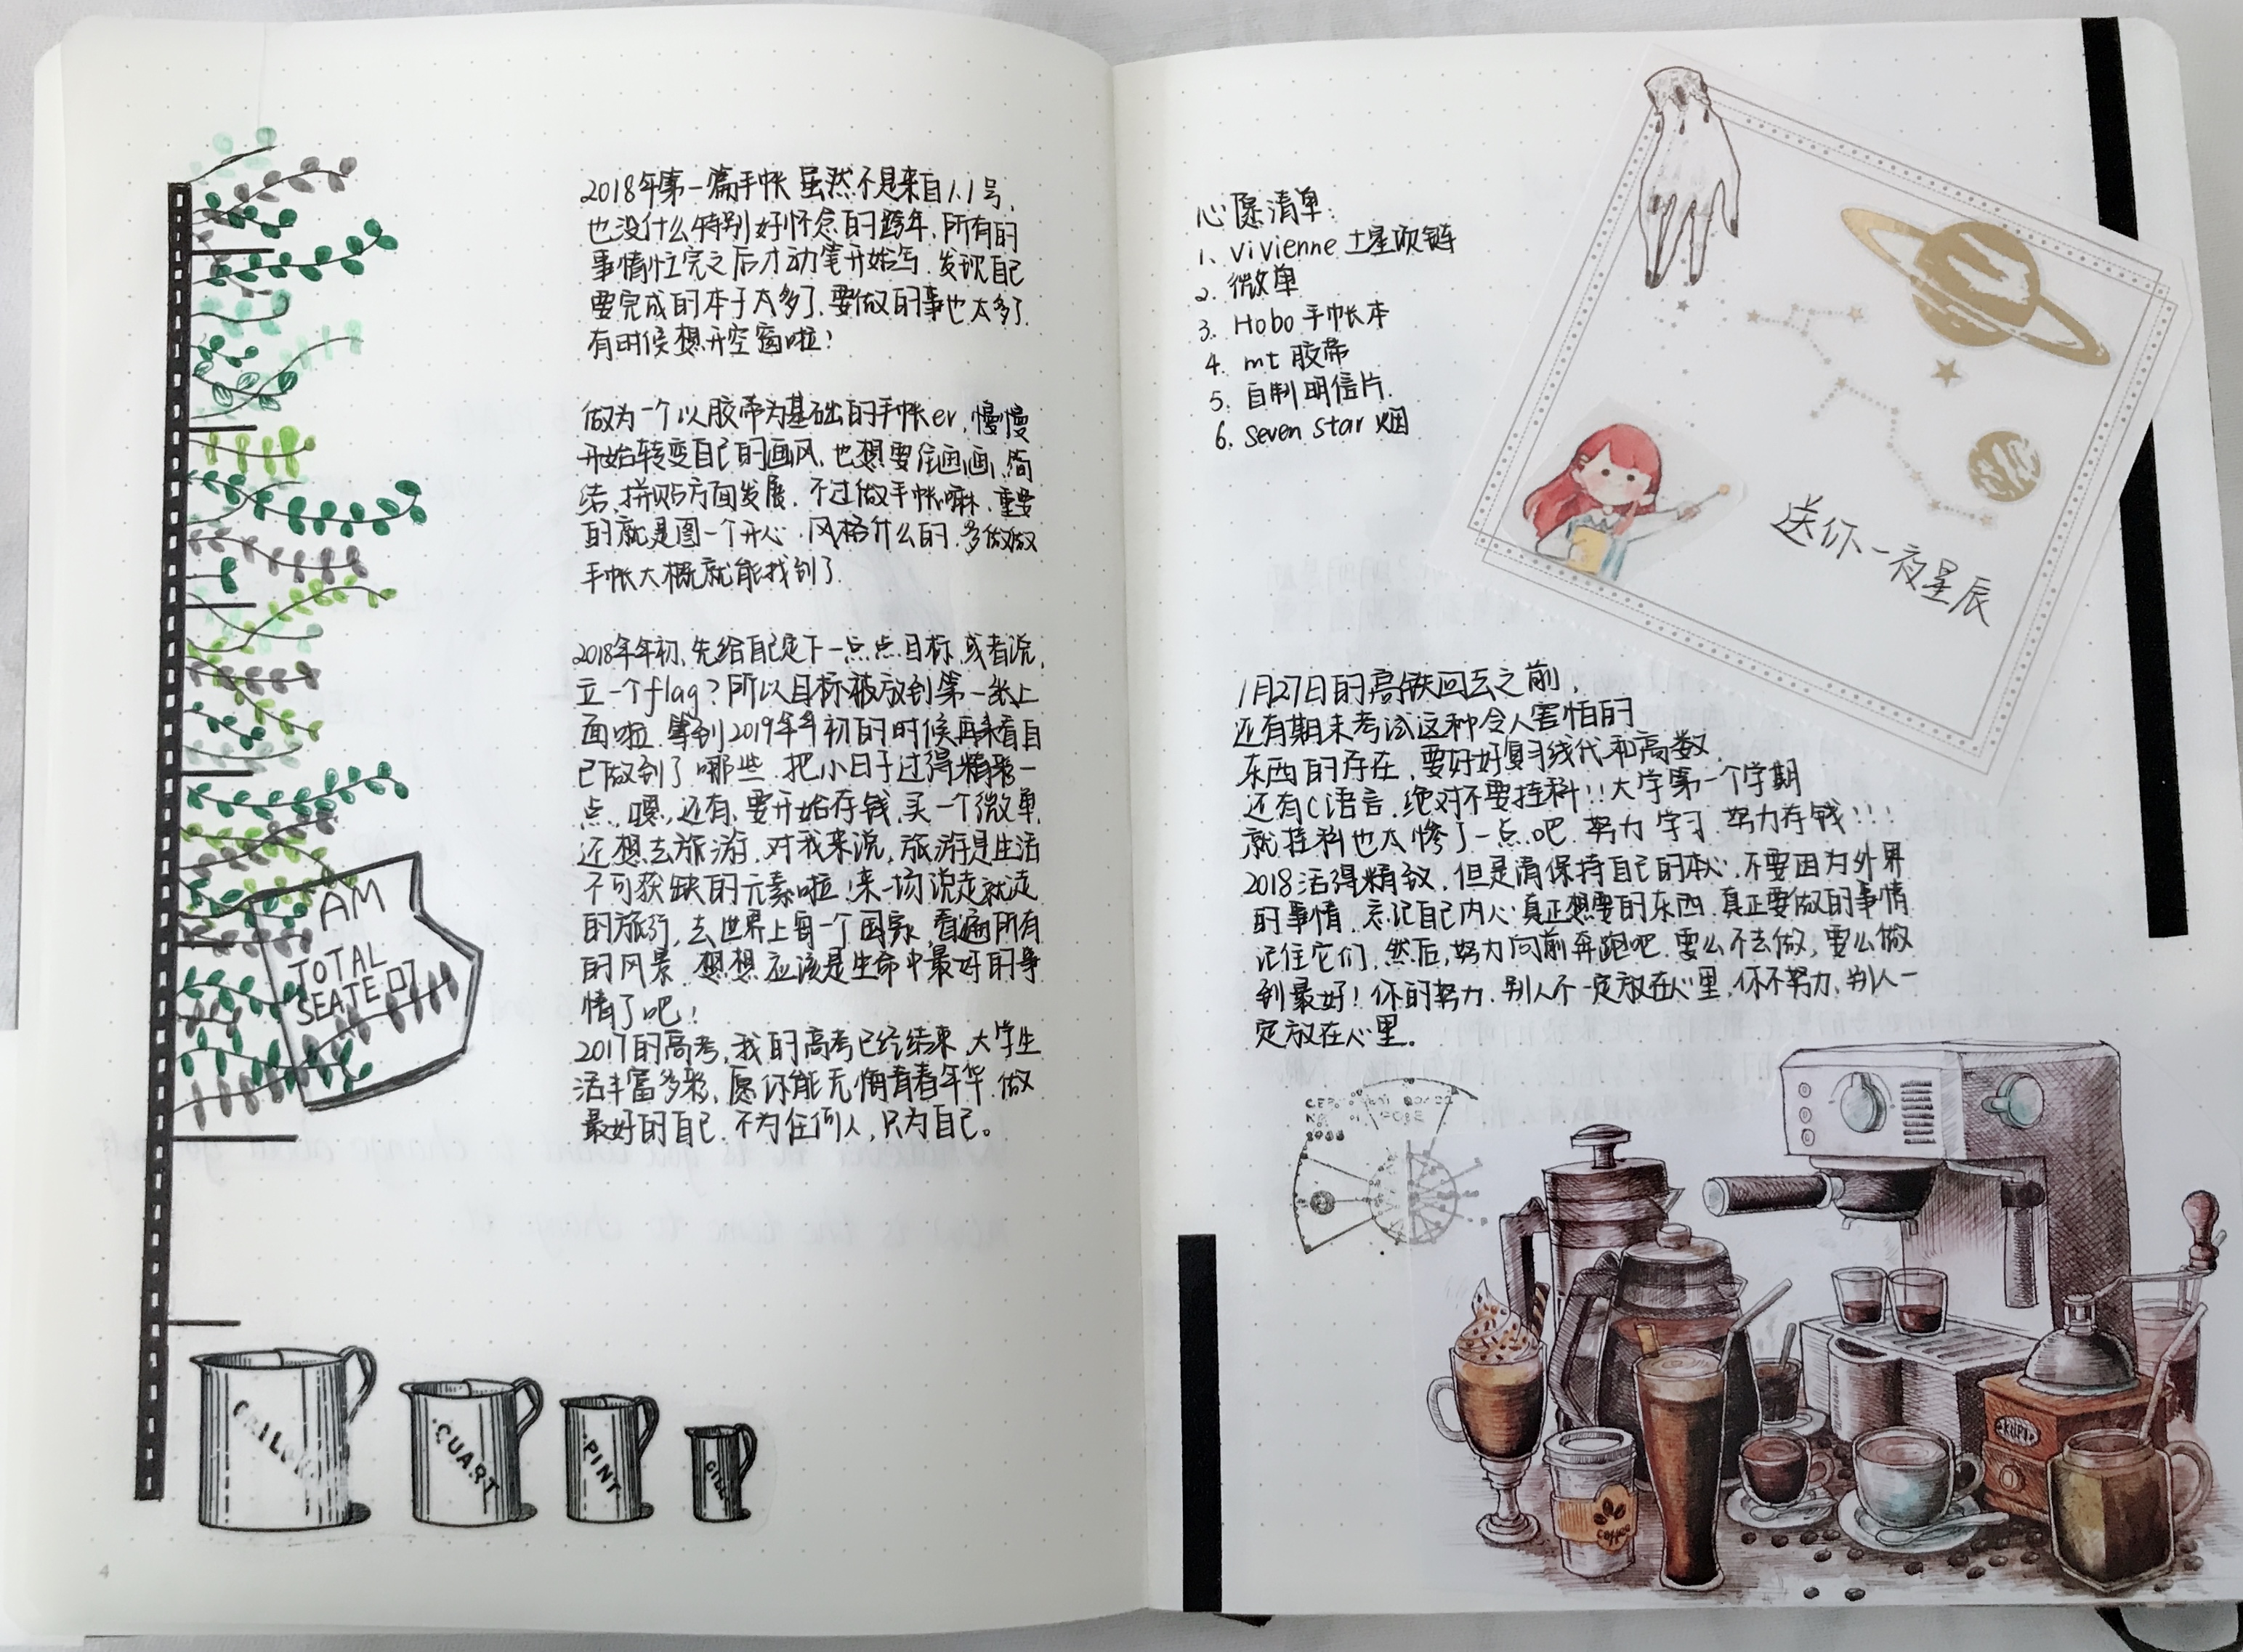 2018年第一篇手帐 虽然不是来自1.1号,
也没什么特别好怀念的跨年,所有的
事情忙完之后才动笔开始写.发现自己
要完成的本子太多了,要做的事也太多了.
有时候想开空窗啦!
做为一个以胶带为基础的手帐er,慢慢
开始转变自己的画风,也想要往画画、简
洁、拼贴方面发展.不过做手帐嘛,重要
的就是图一个开心.风格什么的.多做做
手帐大概就能找到了.
2018年年初,先给自己定下一点点目标,或者说,
立一个flag?所以目标被放到第一张上
面啦.等到2019年年初的时候再来看自
己做到了哪些.把小日子过得精彩一
点.嗯,还有,要开始存钱,买一个微单,
还想去旅游,对我来说,旅游是生活
不可获缺的元素啦!来一场说走就走
的旅行,去世界上每一个国家,看遍所有
的风景.想想应该是生命中最好的事
情了吧!
2017的高考,我的高考已经结束,大学生
活丰富多彩,愿你能无悔青春年华.做
最好的自己.不为任何人,只为自己。
AM
TOTAL
SEATE
QUART
PINT
GILL
4
心愿清单:
1、Vivienne 土星项链
2. 微单
3. Hobo 手帐本
4. mt 胶带
5. 自制明信片.
6. seven star 烟
送你一夜星辰
1月27日的高铁回去之前,
还有期末考试这种令人害怕的
东西的存在,要好好复习线代和高数,
还有C语言,绝对不要挂科!!大学第一个学期
就挂科也太惨了一点吧.努力学习.努力存钱!!!
2018活得精致,但是请保持自己的本心.不要因为外界
的事情.忘记自己内心真正想要的东西.真正要做的事情
记住它们.然后,努力向前奔跑吧.要么不去做,要么做
到最好!你的努力.别人不一定放在心里,你不努力,别人一
定放在心里。
coffee